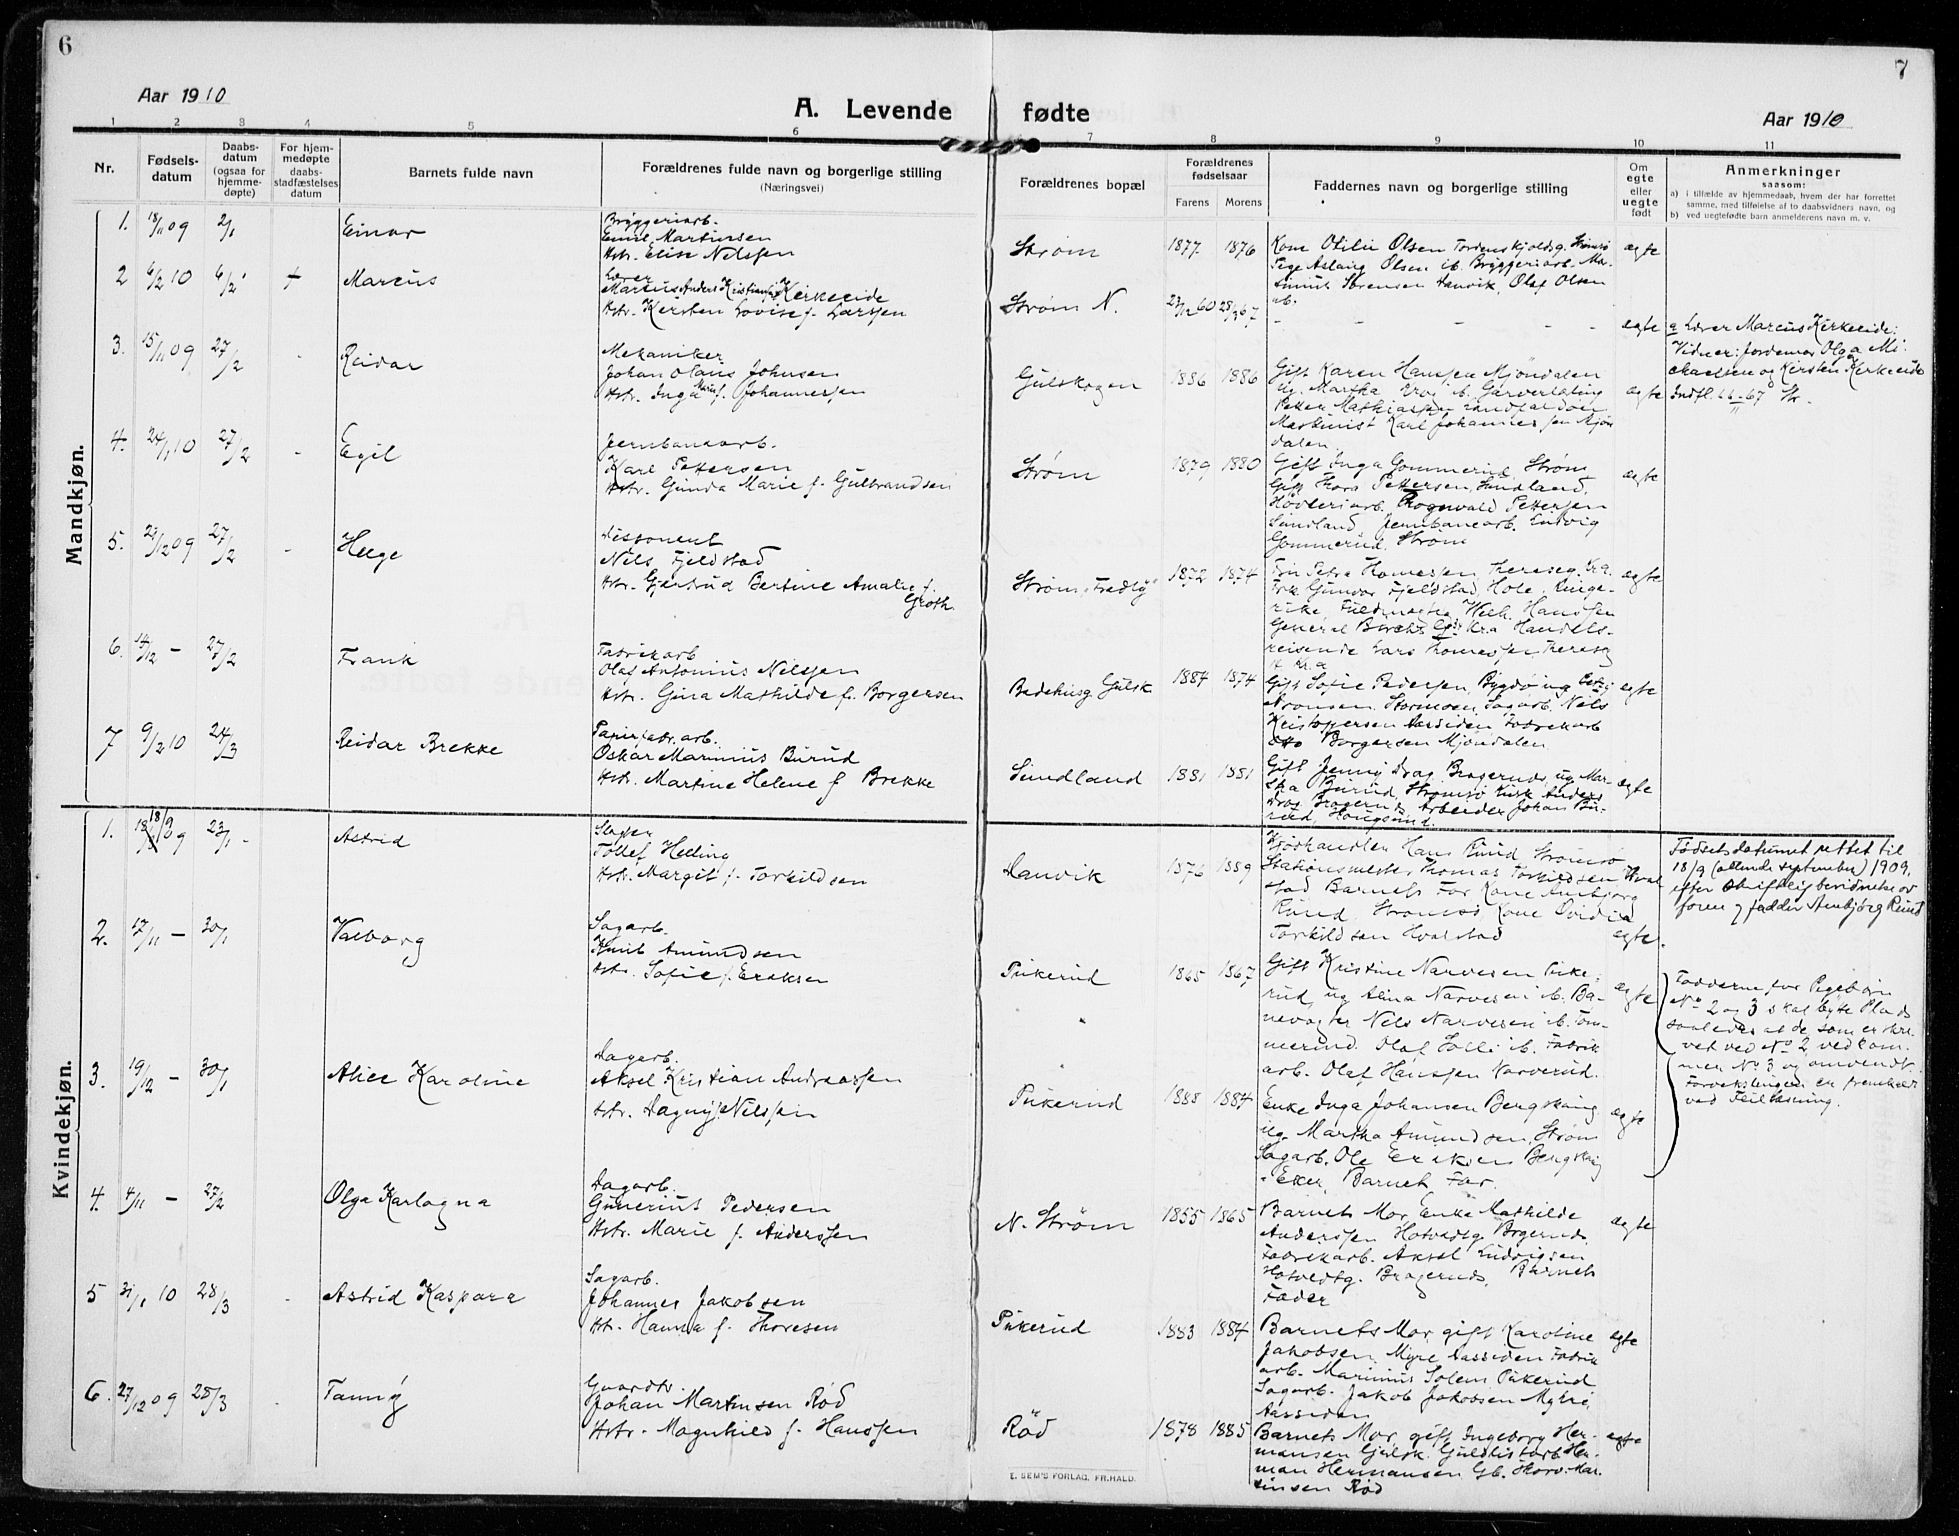 6
7
Aar 1910
A. Levende
fødte
Aar 1910
1 2 3 4 5 6
7 8 9 10 11
Nr.
Fødsels-
datum
Daabs-
datum
(ogsaa for
hjemme-
døpte)
For hjem-
medøpte
daabs-
stadfæstelses
datum
Barnets fulde navn
Forældrenes fulde navn og borgerlige stilling
(Næringsvei)
Forældrenes bopæl
Forældrenes
fødselsaar
Farens Morens
Faddernes navn og borgerlige stilling
Om
egte
eller
uegte
født
Anmerkninger
saasom:
a) i tilfælde av hjemmedaab, hvem der har forrettet
samme, med tilføielse af to daabsvidners navn, og
b) ved uegtefødte barn anmelderens navn m. v.
Mandkjøn.
1. 18/11 09 2/1 Einar
Bryggeriarb.
Emil Martinsen
Hstr. Elise Nelssen
Strøm 1877 1876
Kone Otilie Olsen Tordenskjoldsg. Strømsø
Pige Aslaug Olsen ib. Bryggeriarb. Ma-
Sørensen Danvik, Olaf Olsen
ib.
egte
2 6/2 10 6/2 + Marcus
Lærer
Marcus Anders Kristian Kirkeeide
Hstr. Kersten Lovise f. Larssen
Strøm N. 23/12 60 28/3 67
- - - - -
egte
a Lærer Marcus Kirkeeide:
Vidner: Jordemor Olga Mi-
chaelsen og Kirsten Kirkeeide
Indfl. 26-67
3. 15/11 09 27/2 - Reidar
Mekaniker
Johan Olaus Johnsen
Hstr. Inga Marie f. Johannessen
Gulskogen 1886 1886
Gift Karen Hanssen Mjøndalen
ug. Martha ib. Garverlærling
Petter Mathiassen
Maskinist Karl Johannessen Mjøn
dalen
egte
4. 24/1 10 27/2 - Egil
Jernbanearb.
Karl Pettersen
Hstr. Gunda Marie f. Gulbrandsen
Strøm 1879 1880
Gift Inga Gommerud Strøm
Gift Thora Pettersen, Sundland,
Høvleriarb. Rognvald Pettersen
Sundland, Jernbanearb. Ludvig
Gommerud. Strøm
egte
5. 23/12 09 27/2 - Helge
Disponent
Nils Fjeldstad
Hstr. Gjertrud Bertine Amalie f.
Groth.
Strøm, Fredly 1872 1874
Fru Petra Thomessen, Thereseg. Kra.
Frk Gunvor Fjeldstad, Hole, Ringe-
rike, Fuldmægtig Wilh. Hanssen
General Birchs Gd Kra Handels-
reisende Lars Thomessen Thereseg
Kr.a
egte
6. 14/12 - 27/2 Frank
Fabrikarb
Olaf Antonius Nilssen
Hstr. Gina Mathilde f. Borgersen
Bedehusg. Gulsk. 1884 1874
Gift Sofie Pedersen, Bygdø ug Betzy
Aronsen. Stormoen, Sagarb. Nils
Kristoffersen Aassiden Fabrikarb
Otto Borgersen Mjøndalen
egte
7 9/2 10 24/3 Reidar Brekke
Papirfabr.arb.
Oskar Marinius Burud
Hstr. Martine Helene f Brekke
Sundland 1881 1881
Gift Jenny Drag Bragernes, ug Mar-
tha Burud, Strømsø Anders
Drag Bragernes Arbeider Johan Bu-
rud, Hougsund.
egte
Kvindekjøn.
1. 18/9 09 23/1 - Astrid
Slagter
Tollef Helling
Hstr. Margit f. Torkildsen
Danvik 1876 1889
Kjødhandler Hans Ruud Strømsø
Stationsmester Thomas Torkildsen Hval-
stad Barnets Far Kone Anbjørg
Ruud, Strømsø, Kone Ovidia
Torkildsen Hvalstad
egte.
Fødselsdatumet rettet til
18/9 (attende september) 1909,
efter skriftlig bevidnelse av
faren og fadder Anbjørg Ruud
2. 17/11 - 30/1 Valborg
Sagarb.
Knut Amundsen
Hstr. Sofie f. Eriksen
Pukerud 1865 1867
Gift Kristine Narvesen Puke-
rud, ug Alina Narvesen ib. Ba-
nevogter Nils Narvesen ib. Tom-
merud. Olaf Solli ib. Fabrik
arb. Olaf Hanssen Narverud.
egte
Fadderne for Pigebørn
No 2 og 3 skal bytte Plads
saaledes at de som er skre-
vet ved No 2 vedkom-
mer No 3 og omvendt.
Forvekslingen er fremkommet
ved Feillæsning.
3. 19/12 - 30/1 Alice Karoline
Dagarb.
Aksel Kristian Andreassen
Hstr. Dagny f. Nilssen
Pukerud 1888 1884
Enke Inga Johansen Bergskaug
ug. Martha Amundsen, Strøm
Sagarb. Ole Eriksen Bergskaug
Eker, Barnets Far.
egte
4. 4/11 - 27/2 Olga Karlagna
Dagarb.
Gunerius Pedersen
Hstr. Marie f. Anderssen
N. Strøm 1855 1865
Barnets Mor Enke Mathilde
Anderssen Hotvedtg. Bragernes,
Fabrikarb. Aksel Ludvigsen
Hotvedtg. Bragernes, Barnets
Fader
egte
5 31/1 10 28/3 - Astrid Kaspara
Sagarb.
Johannes Jakobsen
Hstr. Hanna f. Thoresen
Pukerud 1883 1884
Barnets Mor gift Karoline
Jakobsen Myre Aassiden Fabrik
arb. Marinius Solem Pukerud
Sagarb. Jakob Jakobsen Myhre
Aassiden
egte
6. 27/12 09 28/3 - Fanny
Gaardbr.
Johan Martinsen Rød
Hstr. Magnhild f. Hanssen
Rød 1878 1885
Barnets Mor, gift Ingeborg Her-
mansen Gulsk. Guldlistarb Her-
man Hermansen Gb. Thorv. Mar-
tinsen Rød
egte
E. SEM'S FORLAG, FR.HALD.